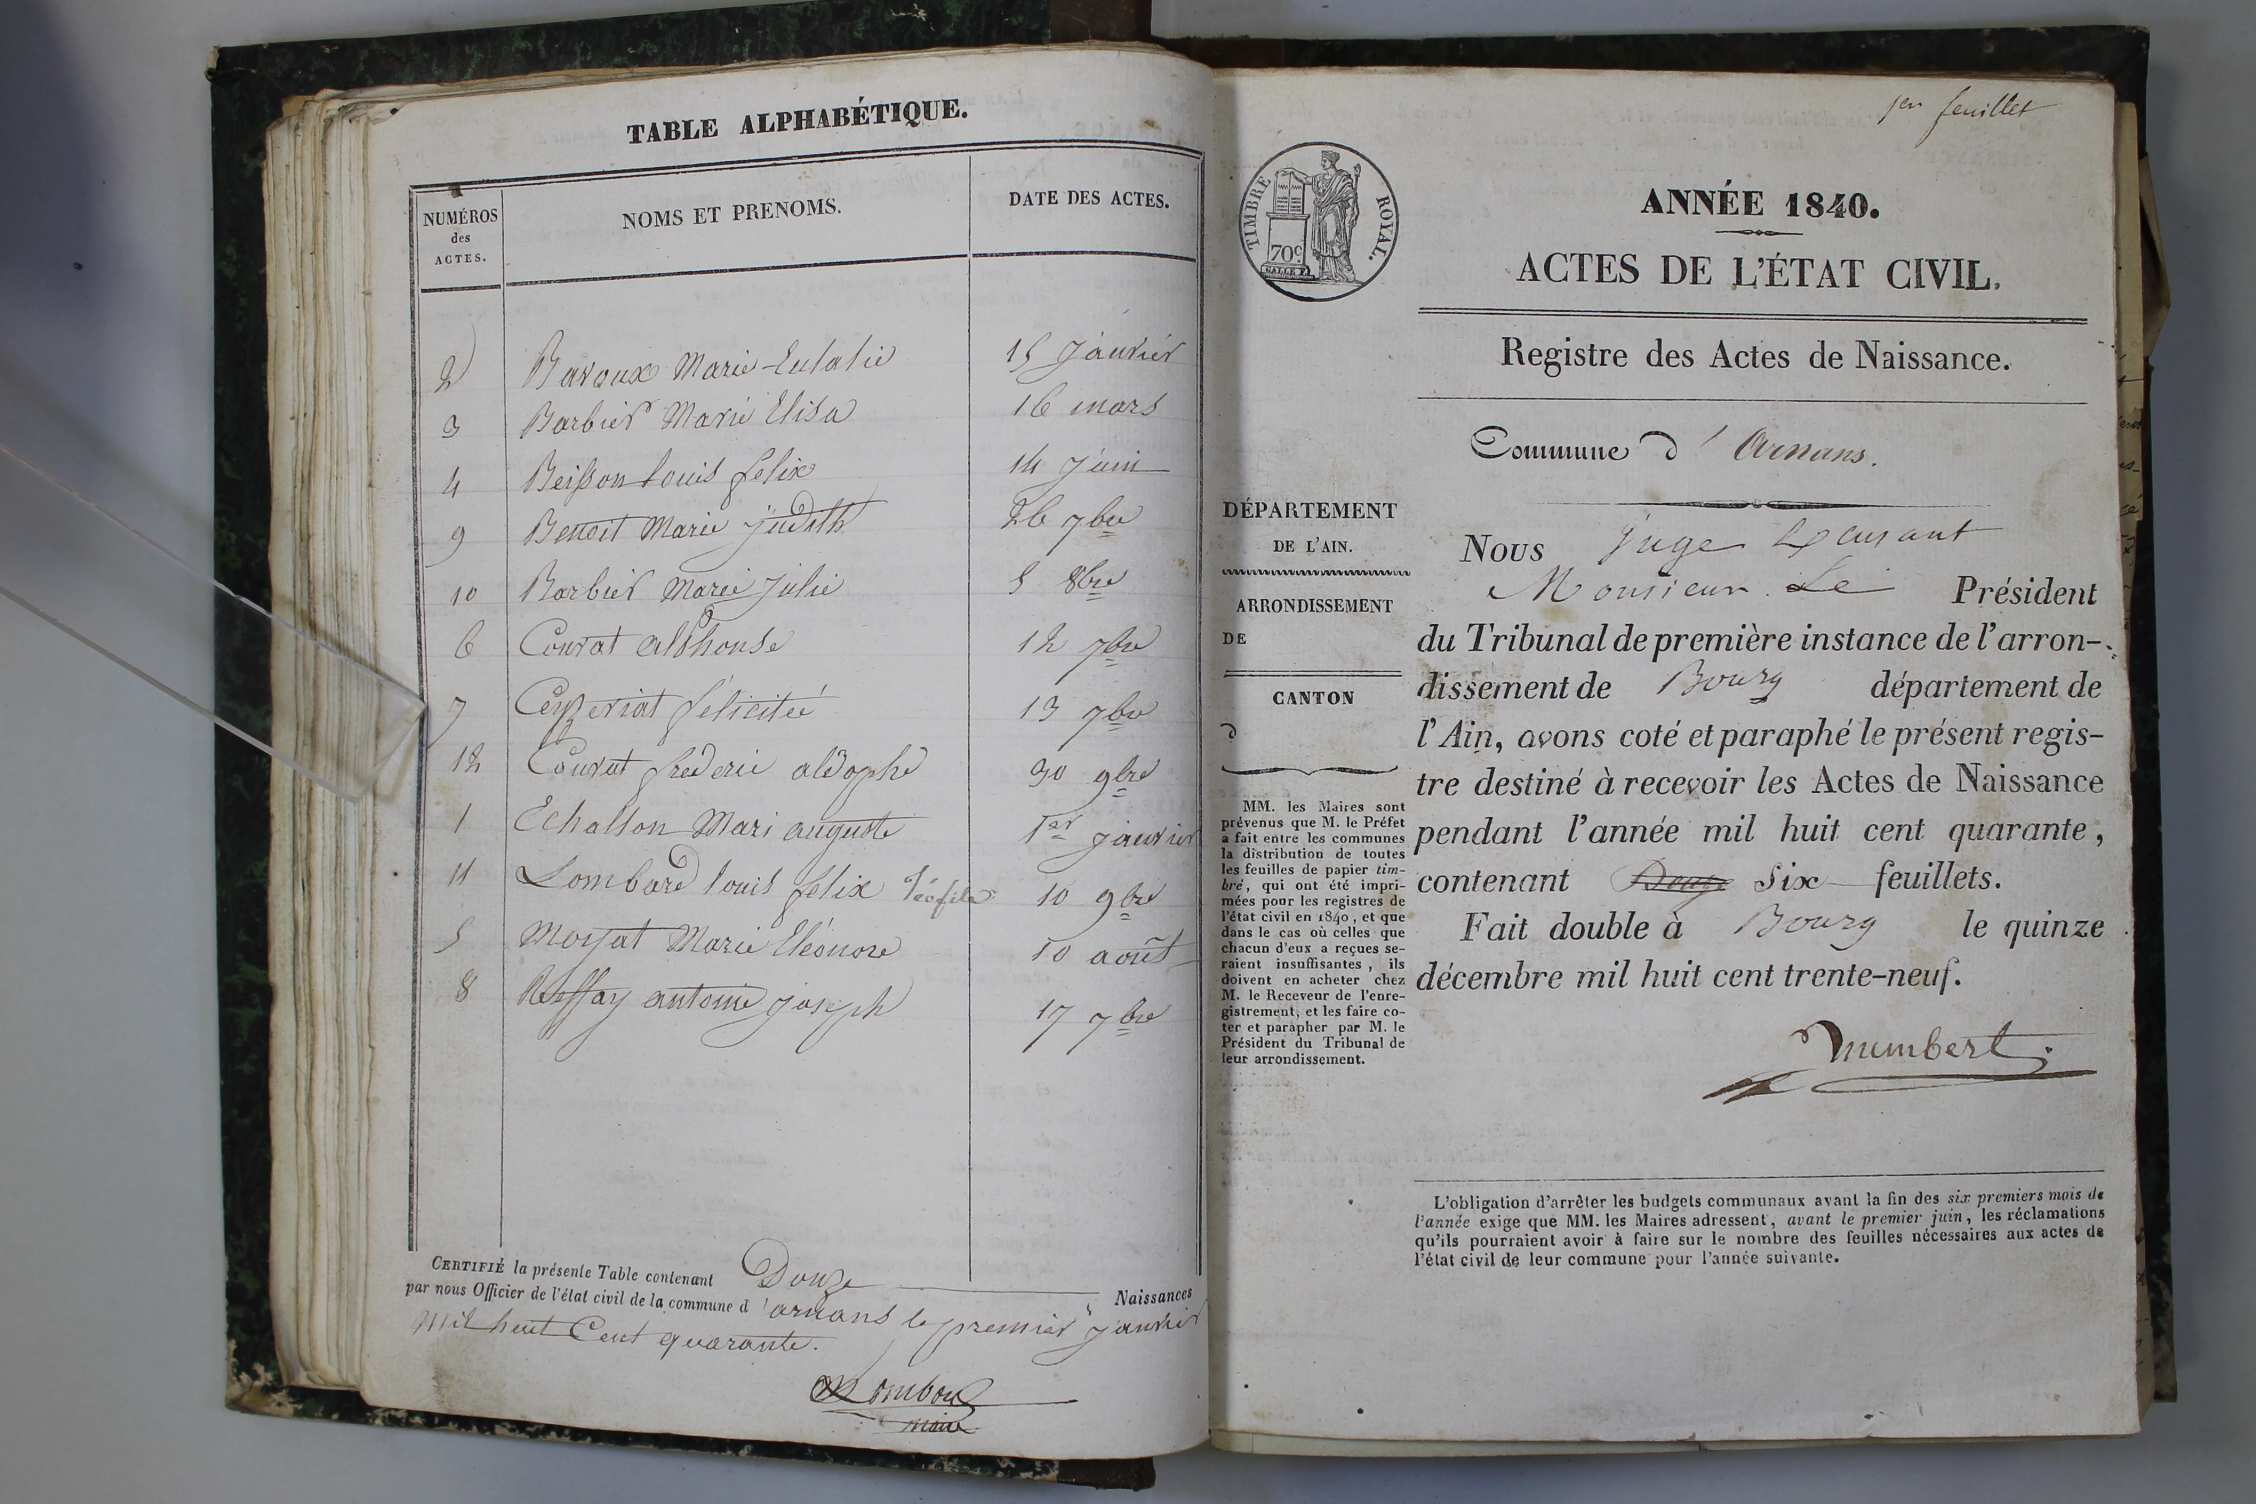 TABLE ALPHABÉTIQUE.
NUMÉROS des ACTES. NOMS ET PRENOMS. DATE DES ACTES.
2 Bavoux Marie-Eulalie 15 janvier
3 Barbier Marie Elisa 16 mars
4 Beisson louis felix 14 juin
9 Benoit Marie judith 26 7bre
10 Barbier Marie julie 5 8bre
6 Couvat alphonse 12 7bre
7 félicitée 13 7bre
12 Couvat frederic aldophe 30 9bre
1 Echallon Mari auguste 1er janvier
11 Lombard louis felix Téofile 10 9bre
5 Moyat Marie Eléonore 10 août
8 Reffay antoine joseph 17 7bre
CERTIFIÉ la présente Table contenant Douze Naissances
par nous Officier de l'état civil de la commune d'arnans le premier janvier
Mil huit Cent quarante.
Lombard
maire
1er feuillet
TIMBRE ROYAL.
70c
ANNÉE 1840.
ACTES DE L'ÉTAT CIVIL.
Registre des Actes de Naissance.
Commune d'Arnans.
DÉPARTEMENT
DE L'AIN.
ARRONDISSEMENT
DE
CANTON
d
MM. les Maires sont
prévenus que M. le Préfet
a fait entre les communes
la distribution de toutes
les feuilles de papier tim-
bré, qui ont été impri-
mées pour les registres de
l'état civil en 1840, et que
dans le cas où celles que
chacun d'eux a reçues se-
raient insuffisantes, ils
doivent en acheter chez
M. le Receveur de l'enre-
gistrement, et les faire co-
ter et parapher par M. le
Président du Tribunal de
leur arrondissement.
Nous juge
Monsieur Le Président
du Tribunal de première instance de l'arron-
dissement de Bourg département de
l'Ain, avons coté et paraphé le présent regis-
tre destiné à recevoir les Actes de Naissance
pendant l'année mil huit cent quarante,
contenant Douze six feuillets.
Fait double à Bourg le quinze
décembre mil huit cent trente-neuf.
L'obligation d'arrêter les budgets communaux avant la fin des six premiers mois de
l'année exige que MM. les Maires adressent, avant le premier juin, les réclamations
qu'ils pourraient avoir à faire sur le nombre des feuilles nécessaires aux actes de
l'état civil de leur commune pour l'année suivante.